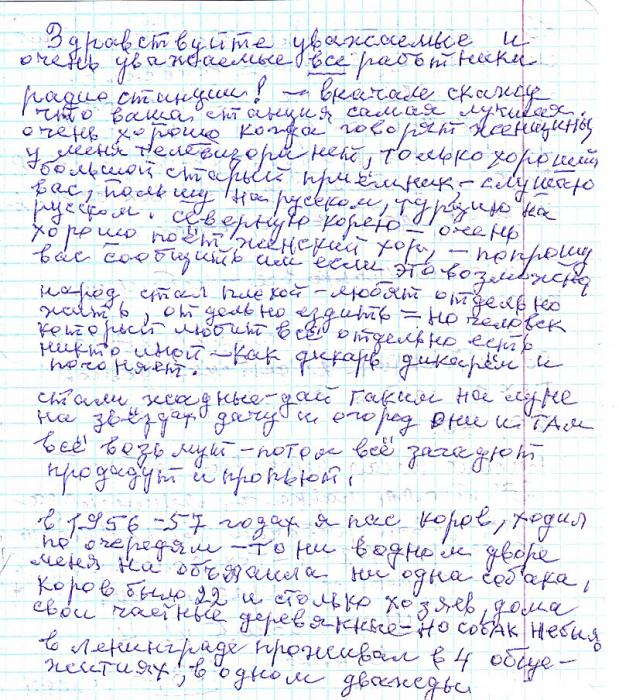 Здравствуйте уважаемые и
очень уважаемые все работники
радиостанции! – вначале скажу
что ваша станция самая лучшая.
очень хорошо когда говорят женщины
у меня телевизора нет, только хороший
большой старый приёмник – слушаю
вас, польшу на русском, турцию на
русском. северную корею – очень
хорошо поёт женский хор, – попрошу
вас сообщить им если это возможно
народ стал плохой – любят отдельно
жить, отдельно ездить – но человек
который любит всё отдельно есть
никто иной – как дикарь дикарём и
стали жадные – дай таким на луне
на звёздах дачу и огород они и там
всё возьмут – потом всё загадют
продадут и пропьют.
в 1956-57 годах я пас коров, ходил
по очередям – то ни в одном дворе
меня на объгаила ни одна собака,
коров было 22 и столько хозяев, дома
свои частные деревянные – но собак небыло
в ленинграде проживал в 4 обще-
житиях, в одном дважды